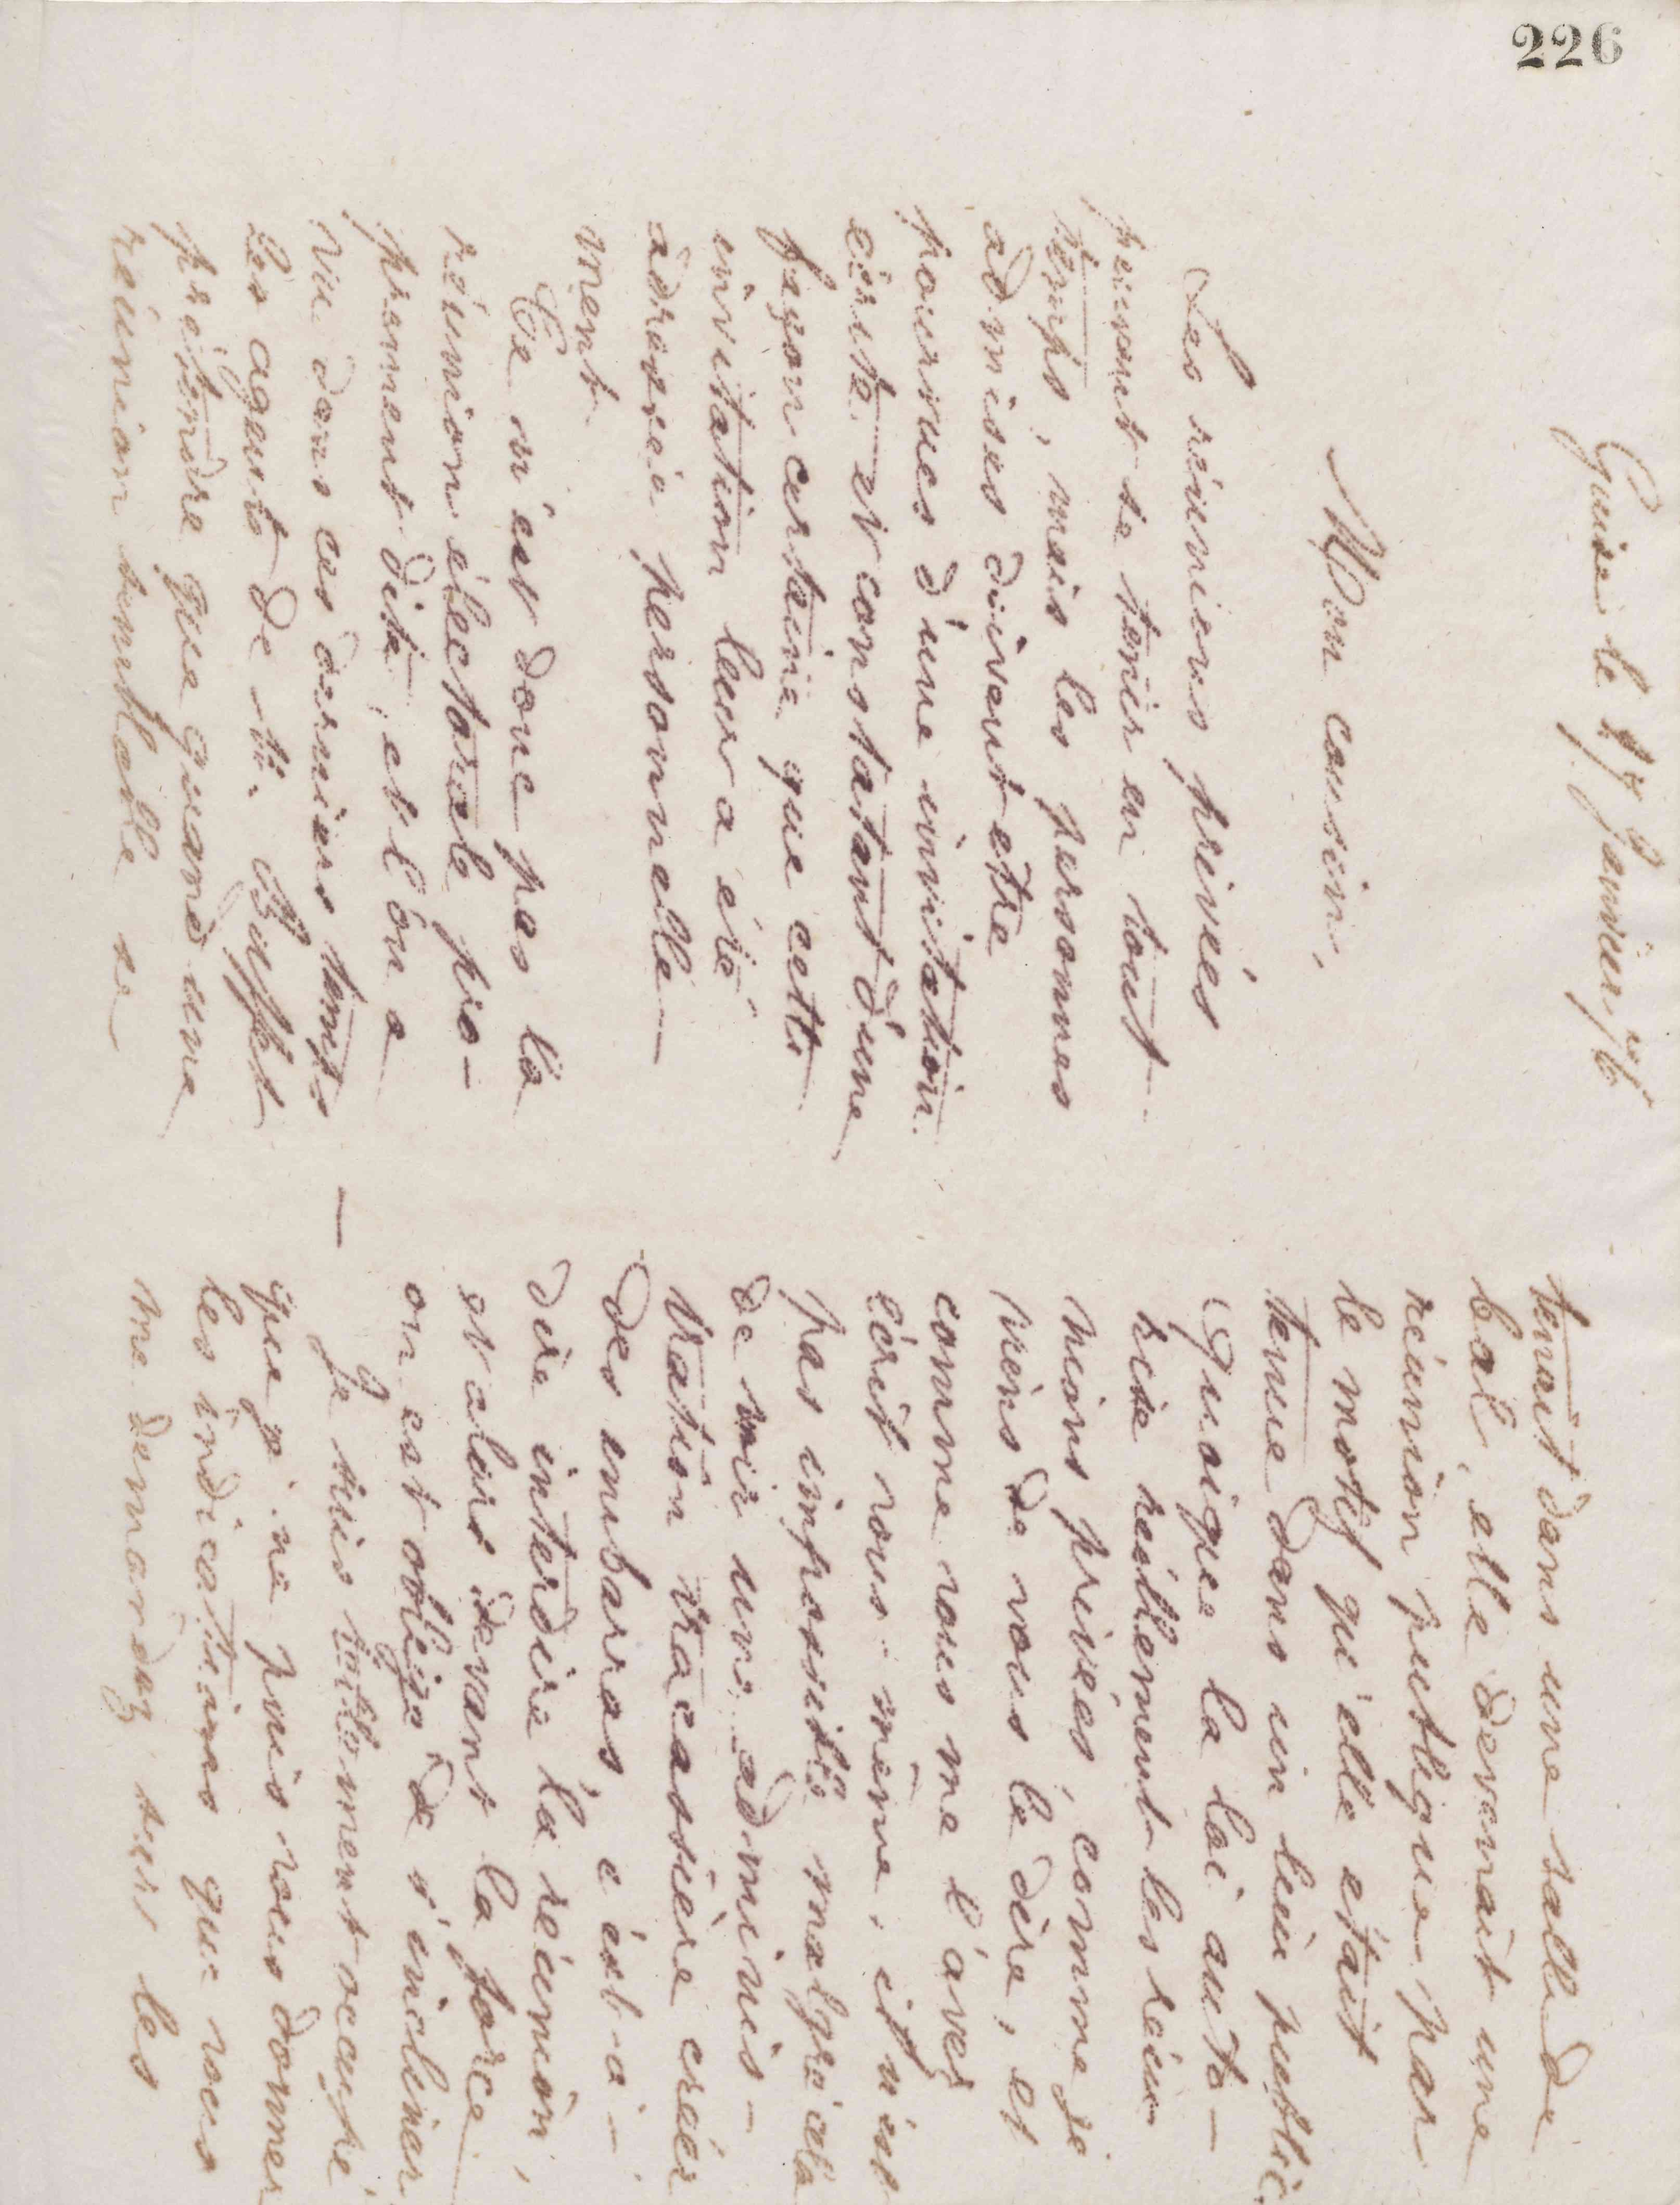 226
Guise le 27 Janvier 76
Mon cousin,
Les réunions privés
peuvent se tenir en tout
temps, mais les personnes
admises doivent etre
pourvues d'une invitation
écrite et constatant d'une
façon certaine que cette
invitation leur a été
adressée personnelle-
ment.
Ce n'est donc pas la
réunion électorale pro-
prement dite, et l'on a
vu dans ces derniers temps
les agents de Mr. Buffet
prétendre que quand une
réunion semblable se
tenait dans une salle de
bal, elle devenait une
réunion publique par
le motif qu'elle était
tenue dans un lieu public.
Quoique la loi auto-
rise réellement les réu-
nions privées, comme je
viens de vous le dire, et
comme vous me l'avez
écrit vous-même, il n'est
pas impossible malgré cela
de voir une adminis-
tration tracassière créer
des embarras, c'est-à-
dire interdire la réunion,
et alors devant la force
on est obligé de s'incliner
— Je suis tellement occupé
que je ne puis vous donner
les indications que vous
me demandez sur les